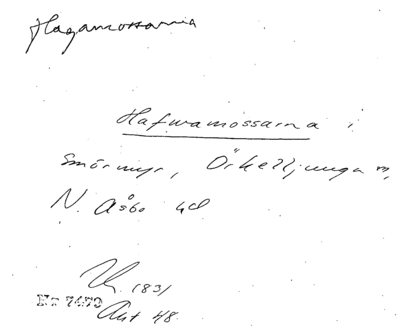 Hagamossarna
Hafwamossarna i
Smörmyr, Örkelljunga sn,
N. Åsbo hd
1831
Nr 7479
Akt 48.